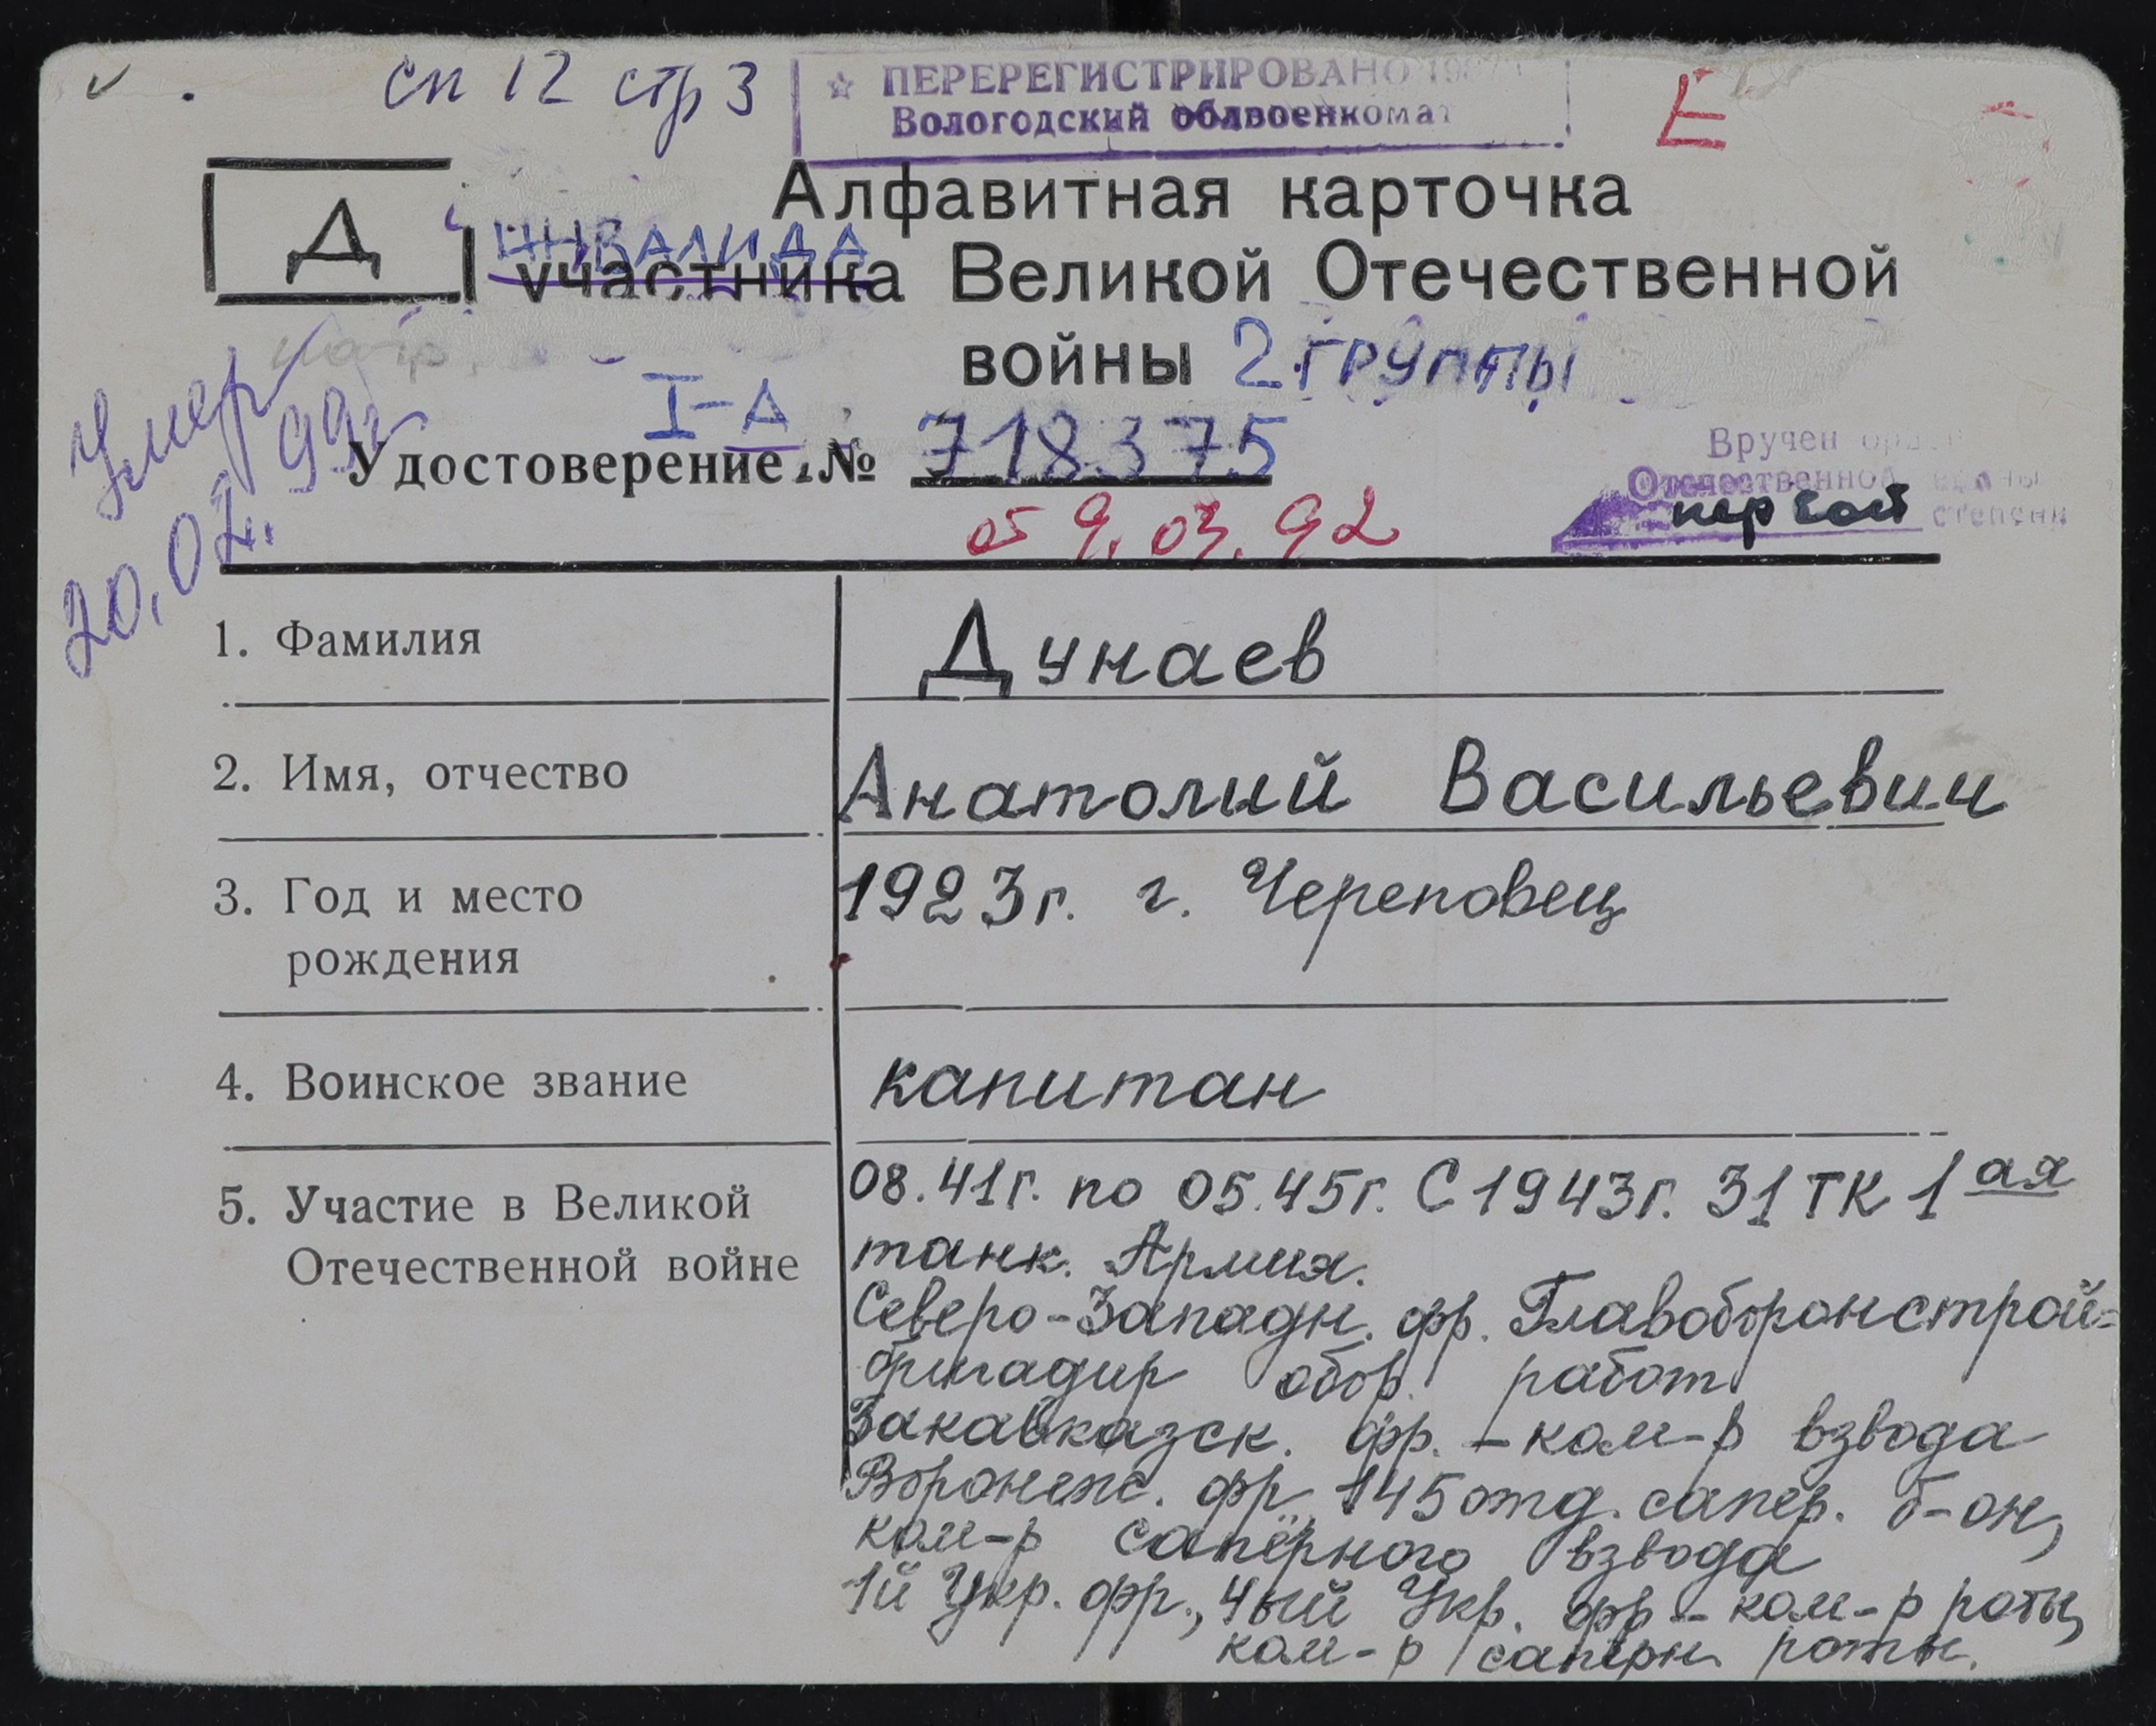 сп 12 стр 3
ПЕРЕРЕГИСТРИРОВАНО
Вологодский облвоенкомат
Е
Д
Алфавитная карточка
ИНВАЛИДА
участника Великой Отечественной
войны 2 ГРУППЫ
I-Д
Удостоверение № 718375
от 9.03.92
Вручен
Отечественной войны
первой степени
Умер
99г
1. Фамилия Дунаев
2. Имя, отчество Анатолий Васильевич
3. Год и место 1923г. г. Череповец
рождения
4. Воинское звание капитан
5. Участие в Великой 08.41г. по 05.45г. С 1943г. 31 ТК 1ая
Отечественной войне танк. Армия.
Северо-Западн. фр. Главоборонстрой-
бригадир обор. работ
Закавказск. фр. – ком-р взвода
Воронежс. фр. 145 отд. сапер. б-он,
ком-р сапёрного взвода
1й Укр. фр., 4ый Укр. фр – ком-р роты,
ком-р сапёрн роты.